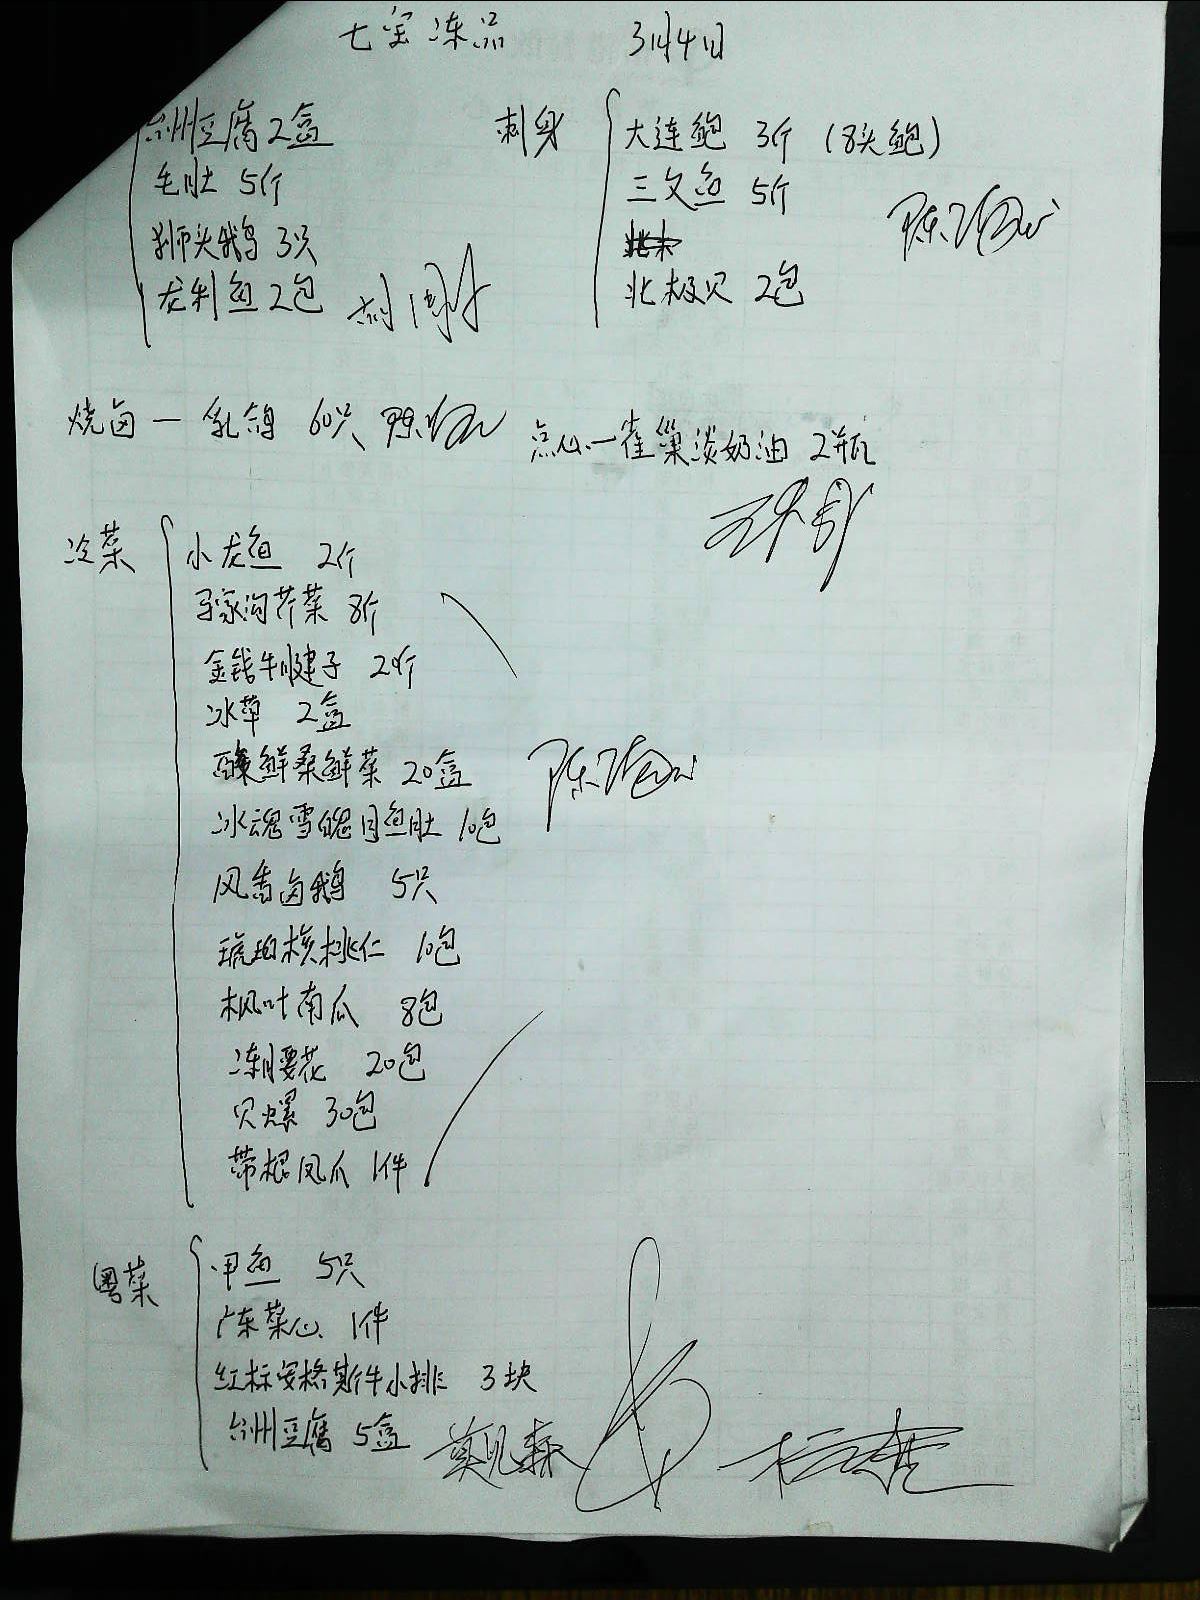 七宝冻品 3月4日
台州豆腐 2盒
毛肚 5斤
狮头鹅 3只
龙利鱼 2包
刺身
大连鲍 3斤 (8头鲍)
三文鱼 5斤
北极贝 2包
烧卤一 乳鸽 60只
点心一雀巢淡奶油 2瓶
冷菜
小龙鱼 2斤
马家沟芹菜 8斤
金钱牛腱子 20斤
冰草 2盒
酸鲜桑鲜菜 20盒
冰魂雪魄月鱼肚 10包
风香卤鹅 5只
琥珀核桃仁 10包
枫叶南瓜 8包
冻腰花 20包
贝螺 30包
带根凤爪 1件
粤菜
甲鱼 5只
广东菜心 1件
红标安格斯牛小排 3块
台州豆腐 5盒